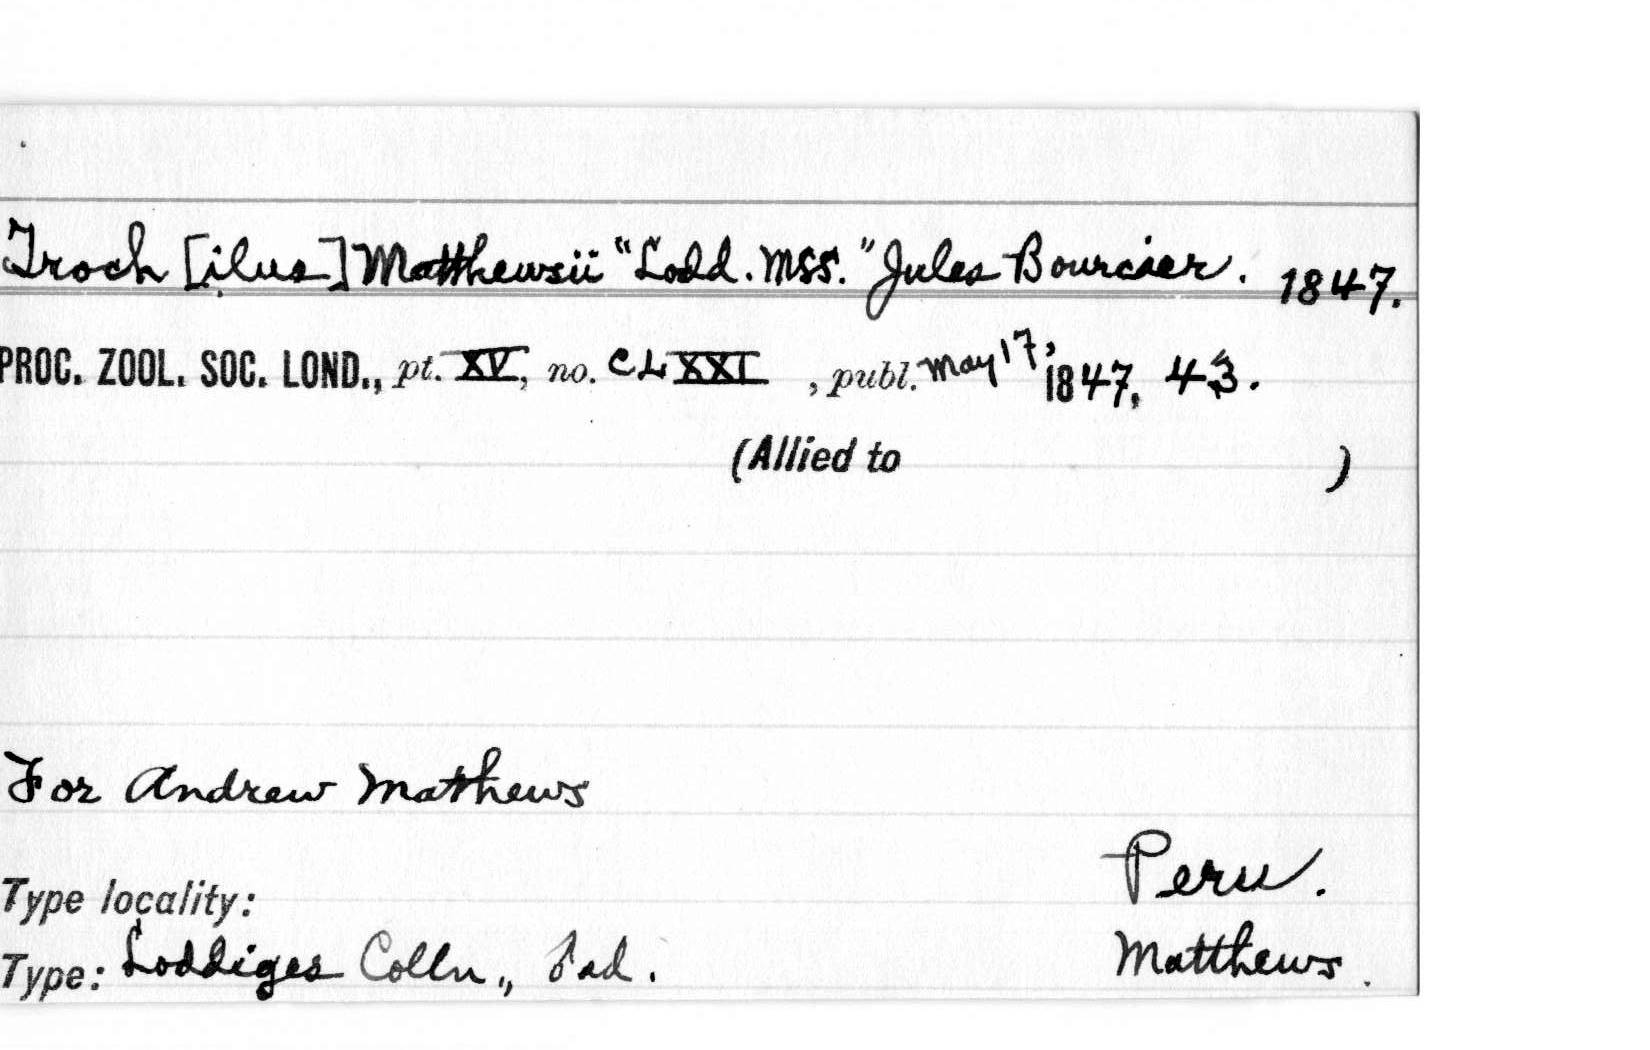 Troch [ilus] Matthewsii "Lodd. MSS." Jules Bourcier. 1847.
PROC. ZOOL. SOC. LOND., pt. XV, no. CLXXI , publ. May 17, 1847, 43.
(Allied to )
For Andrew Matthews
Peru.
Type locality:
Type: Loddiges Colln., ad. Matthews.